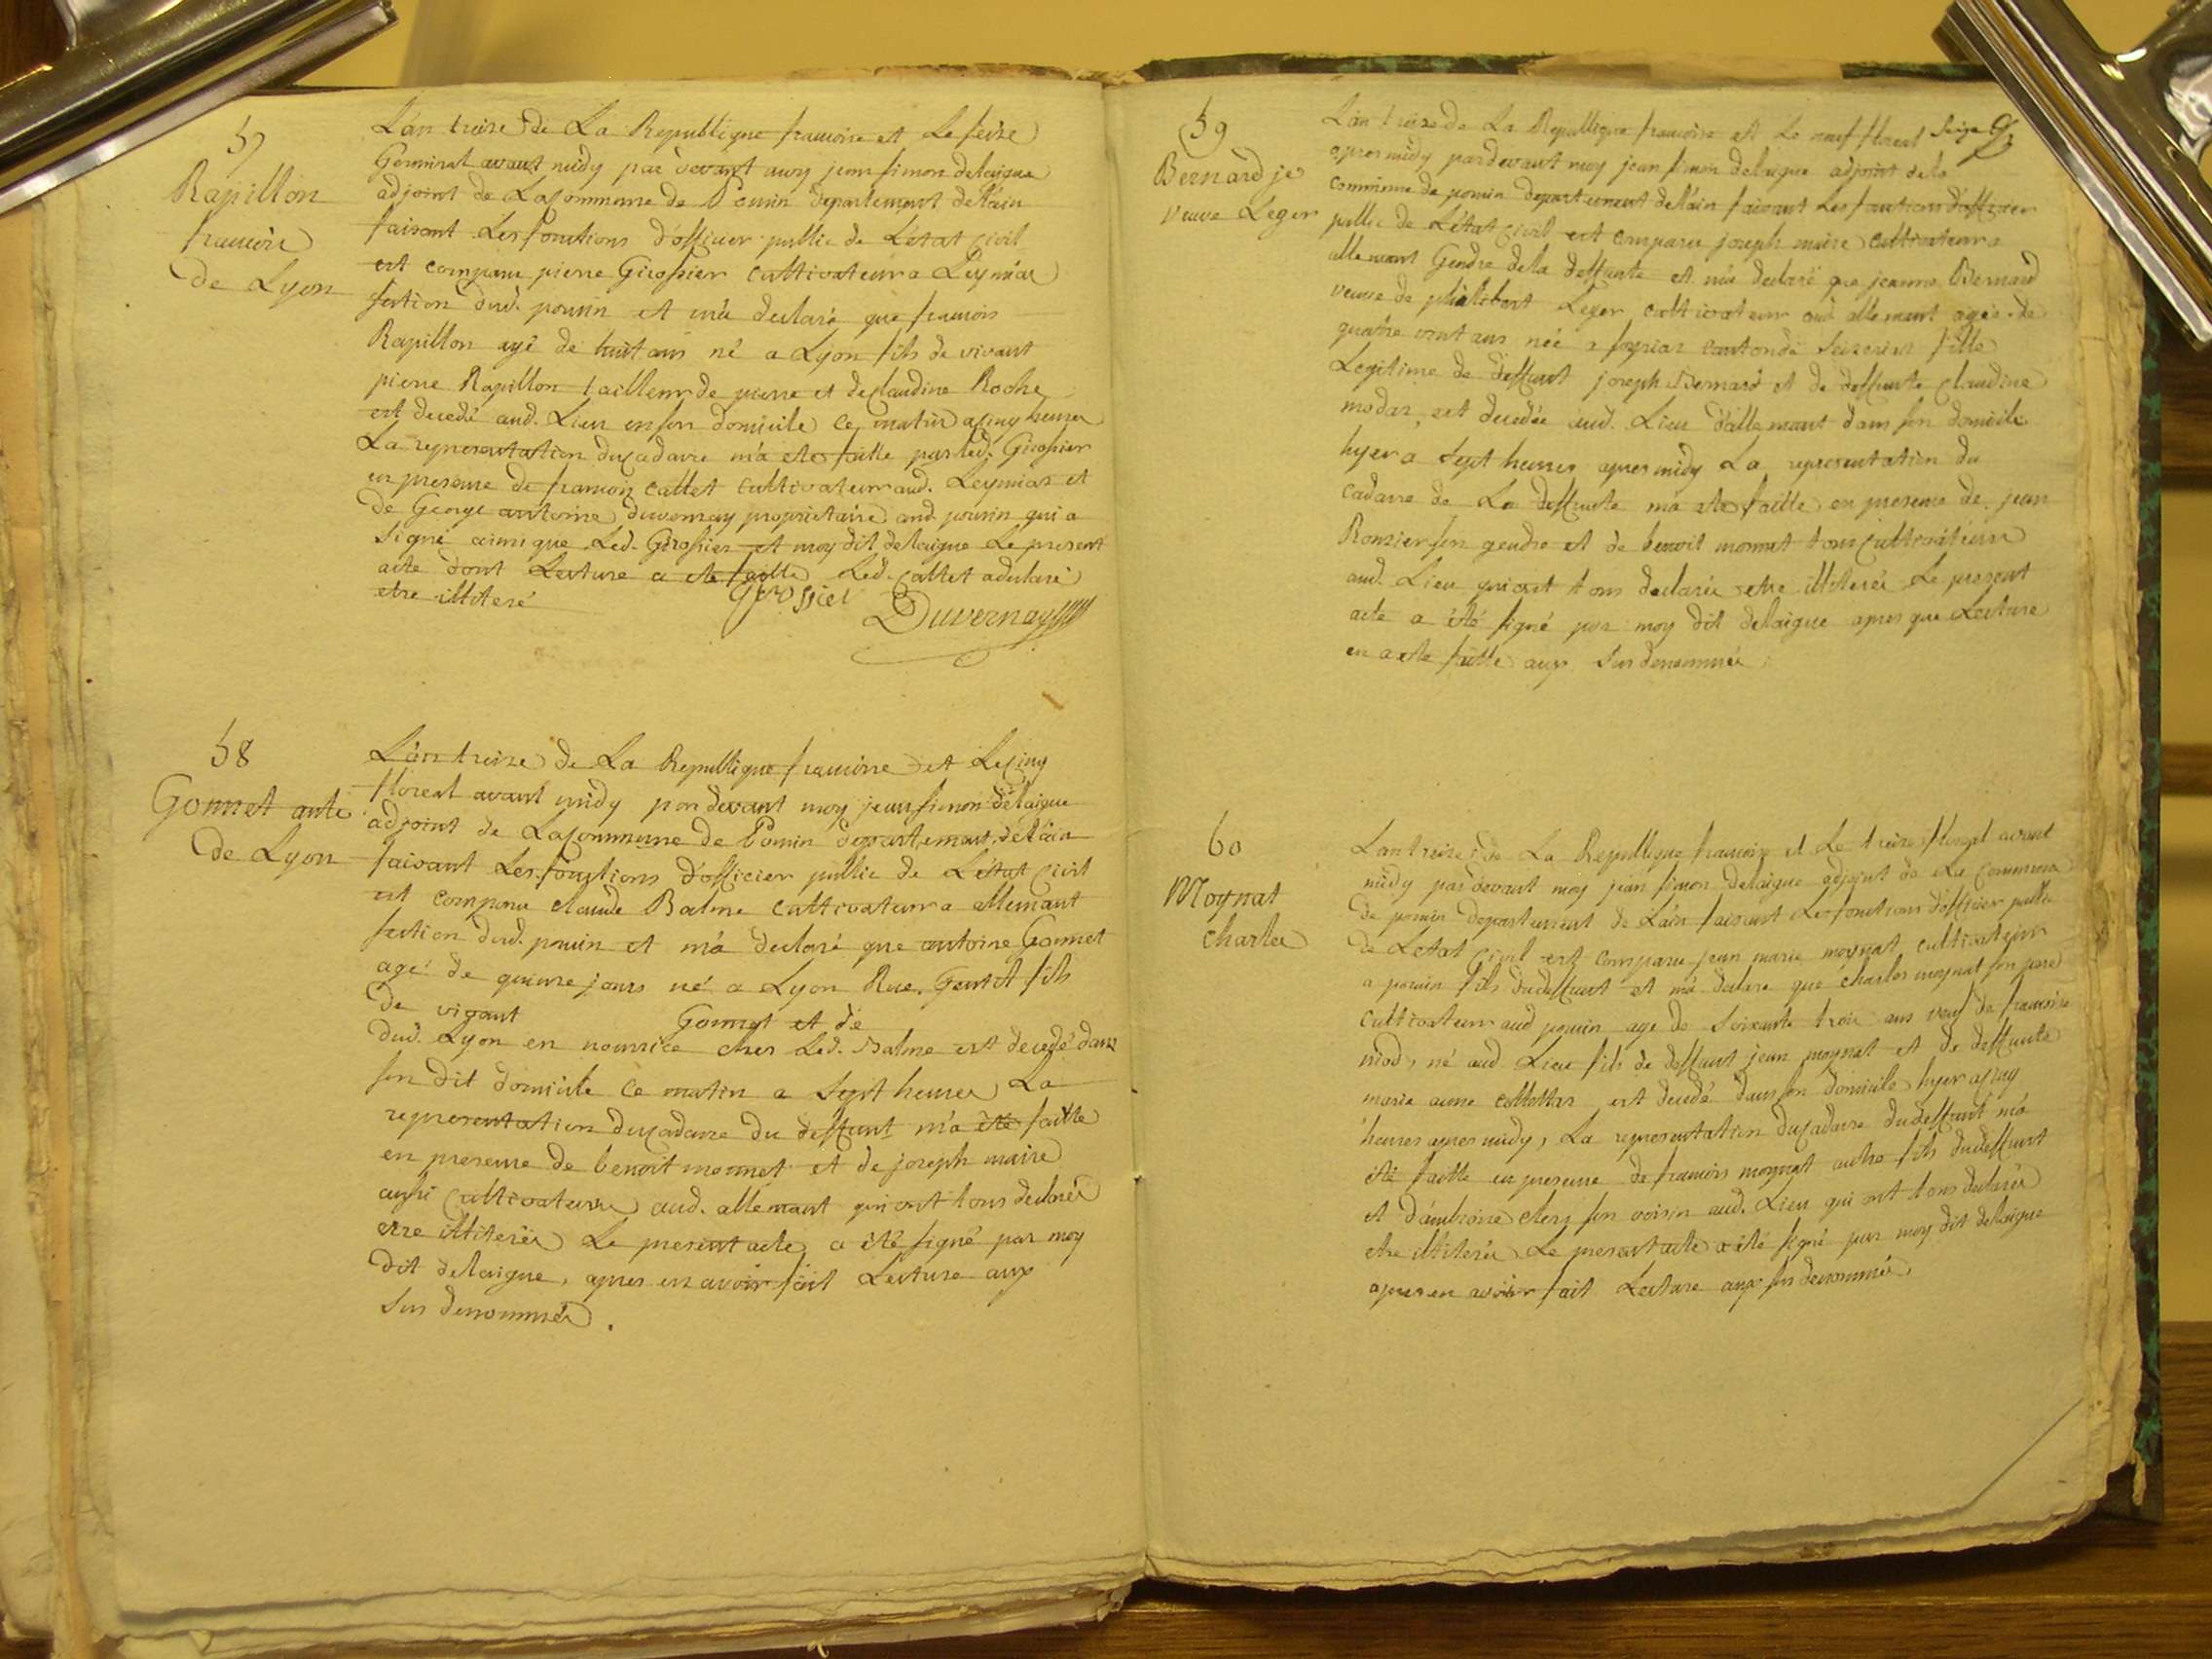 57
Rapillon
francois
de Lyon
L'an treize de La Republique francoise et Le seize
Germinal avant midy par devant moy jean simon delaigue
adjoint de La commune de Poncin departement de L'ain
faisant Les fonctions d'officier public de L'état Civil
est comparu pierre Girossier cultivateur a Leymiac
section dud. poncin et m'a declaré que francois
Rapillon agé de huit ans né a Lyon fils de vivant
pierre Rapillon tailleur de pierre et de claudine Roche
est decedé aud. Lieu en son domicile ce matin a cinq heures
La representation du cadavre m'a ete faitte par led. Girossier
en presence de francois callet cultivateur aud. Leymiac et
de George antoine duvernay proprietaire aud. poncin qui a
signé ainsi que Led. Girossier et moy dit delaigue Le present
acte dont Lecture a ete faitte Led. Callet a declaré
etre illiteré
Girossier
Duvernay
58
Gonnet ante
de Lyon
L'an treize de La Republique francoise et Le cinq
floreal avant midy par devant moy jean simon delaigue
adjoint de La commune de Poncin departement de L'ain
faisant Les fonctions d'officier public de L'état Civil
est comparu claude Balme cultivateur a allemant
section dud. poncin et m'a declaré que antoine Gonnet
agé de quinze jours né a Lyon Rue. Gentet fils
de vivant Gonnet et de
dud. Lyon en nourrice chez Led. Balme est decedé dans
son dit domicile ce matin a sept heures La
representation du cadavre du deffunt m'a été faitte
en presence de benoit monnet et de joseph maire
aussi Cultivateurs aud. allemant qui ont tous declarés
etre illiterés Le present acte a été signé par moy
dit delaigue, apres en avoir fait Lecture aux
sus denommés.
59
Bernard je
veuve Leger
L'an treize de La Republique francoise et Le neuf floreal seize
apres midy pardevant moy jean simon delaigue adjoint de la
commune de poncin departement de L'ain faisant Les fonctions d'officier
public de L'état Civil est comparu joseph maire cultivateur a
allemant Gendre de la deffunte et m'a declaré que jeanne Bernard
veuve de philibert Leger cultivateur aud. allemant agée de
quatre vint ans née a canton de fille
Legitime de deffunt joseph Bernard et de deffunte Claudine
modas, est decedée aud. Lieu d'allemant dans son domicile
hyer a sept heures apres midy La representation du
cadavre de La deffunte m'a ete faitte en presence de jean
Ronzier son gendre et de benoit monnet tous Cultivateurs
aud. Lieu qui ont tous declarés etre illiterés Le present
acte a été signé par moy dit delaigue apres que Lecture
en a ete faitte aux sus denommés.
60
Moynat
charles
L'an treize de La Republique francoise et Le treize floreal avant
midy par devant moy jean simon delaigue adjoint de La commune
de poncin departement de L'ain faisant Les fonctions d'officier public
de L'etat Civil est comparu jean marie moynat cultivateur
a poncin fils du deffunt et m'a declare que charles moynat son pere
cultivateur aud poncin agé de soixante trois ans veuf de francoise
niod, né aud. Lieu fils de deffunt jean moynat et de deffunte
marie anne est decedé dans son domicile hyer a cinq
heures apres midy, La representation du Cadavre du deffunt m'a
été faitte en presence de francois moynat autre fils du deffunt
et d'ambroise clerj son voisin aud. Lieu qui ont tous declarés
etre illiterés Le present acte a été signé par moy dit delaigue
apres en avoir fait Lecture aux sus denommés.